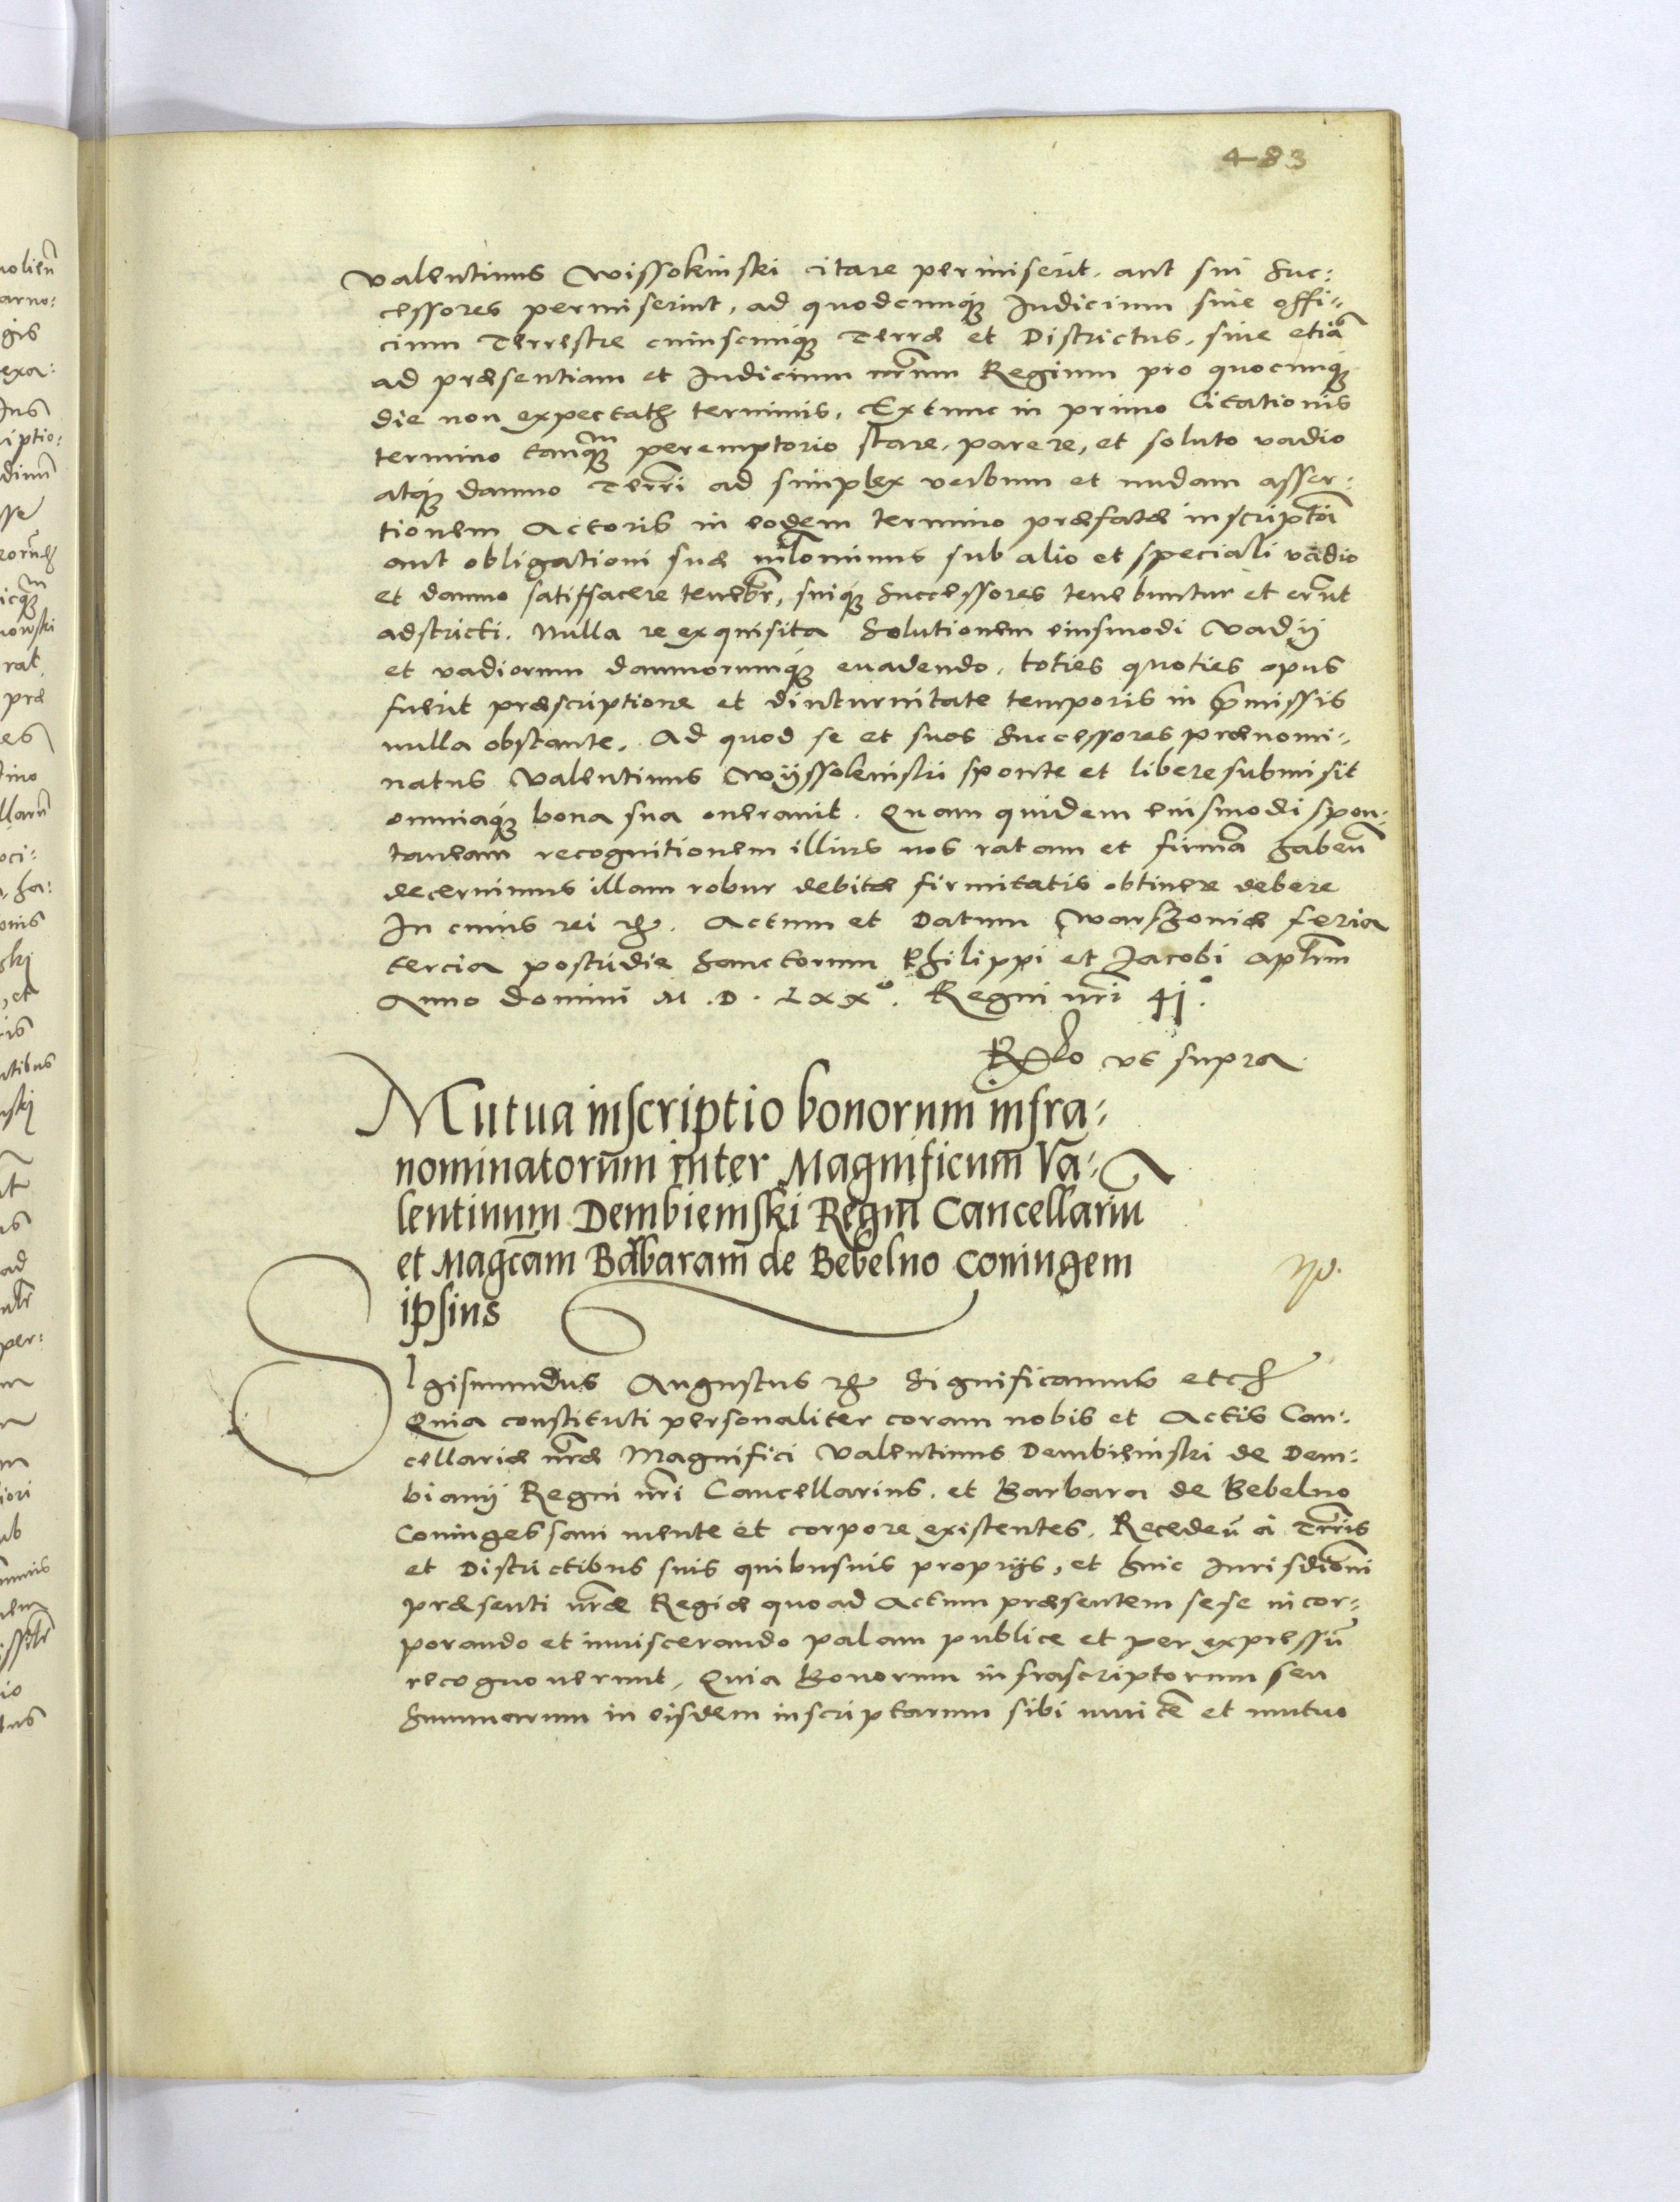 483
Valentinus Wissokinski citare permiserit. aut sui Suc:
cessores permiserint, ad quodcunq; Judicium siue offi:
cium Terrestre cuiuscunq; Terræ et Districtus, siue etiã
ad præsentiam et Judicium nr̃um Regium pro quocunq;
die non expectatis terminis, Extunc in primo Citationis
termino tanq̃m peremptorio stare, parere, et soluto vadio
atq; damno Terrr̃i ad simplex verbum et nudam asser:
tionem Actoris in eodem termino præfatæ inscriptõi
aut obligationi suæ nih̃lominus sub alio et speciali vadio
et damno satisfacere teneb̃r, suiq; Successores tenebuntur et er̃ut
adstricti. Nulla re exquisita Solutionem eiusmodi Vadij
et vadiorum damnorumq; euadendo, toties quoties opus
fuerit præscriptione et diuturnitate temporis in p̃missis
nulla obstante. Ad quod se et suos Successores prænomi:
natus Valentinus Wyssokinski sponte et libere submisit
omniaq; bona sua onerauit. Quam quidem eiusmodi spon:
taneam recognitionem illius nos ratam et firmã habeñ
decernimus illam robur debitæ firmitatis obtinere debere
In cuius rei etc. Actum et Datum Warszouiæ feria
tercia postridie Sanctorum Philippi et Jacobi Apl̃rum
Anno Domini M. D. LXXº. Regni nr̃i 41º.
R̃l̃o vt supra
Mutua inscriptio bonorum infra:
nominatorum inter Magnificum Va:
lentinum Dembienski Regni Cancellariũ
et Magc̃am Barbaram de Bebelno Coniugem
ipsius
Sigismundus Augustus etc. Significamus etc.
Quia constituti personaliter coram nobis et Actis Can:
cellariæ nr̃æ Magnifici Valentinus Dembienski de Dem:
biany Regni nr̃i Cancellarius, et Barbara de Bebelno
Coniuges sani mente et corpore existentes. Recedeñ à Terr̃is
et Districtibus suis quibusuis proprijs, et huic Jurisdic̃oni
præsenti nr̃æ Regiæ quo ad Actum præsentem sese incor:
porando et inuiscerando palam publice et per expressũ
recognouerunt, Quia Bonorum infrascriptorum seu
Summarum in eisdem inscriptarum sibi inuicẽ et mutuo